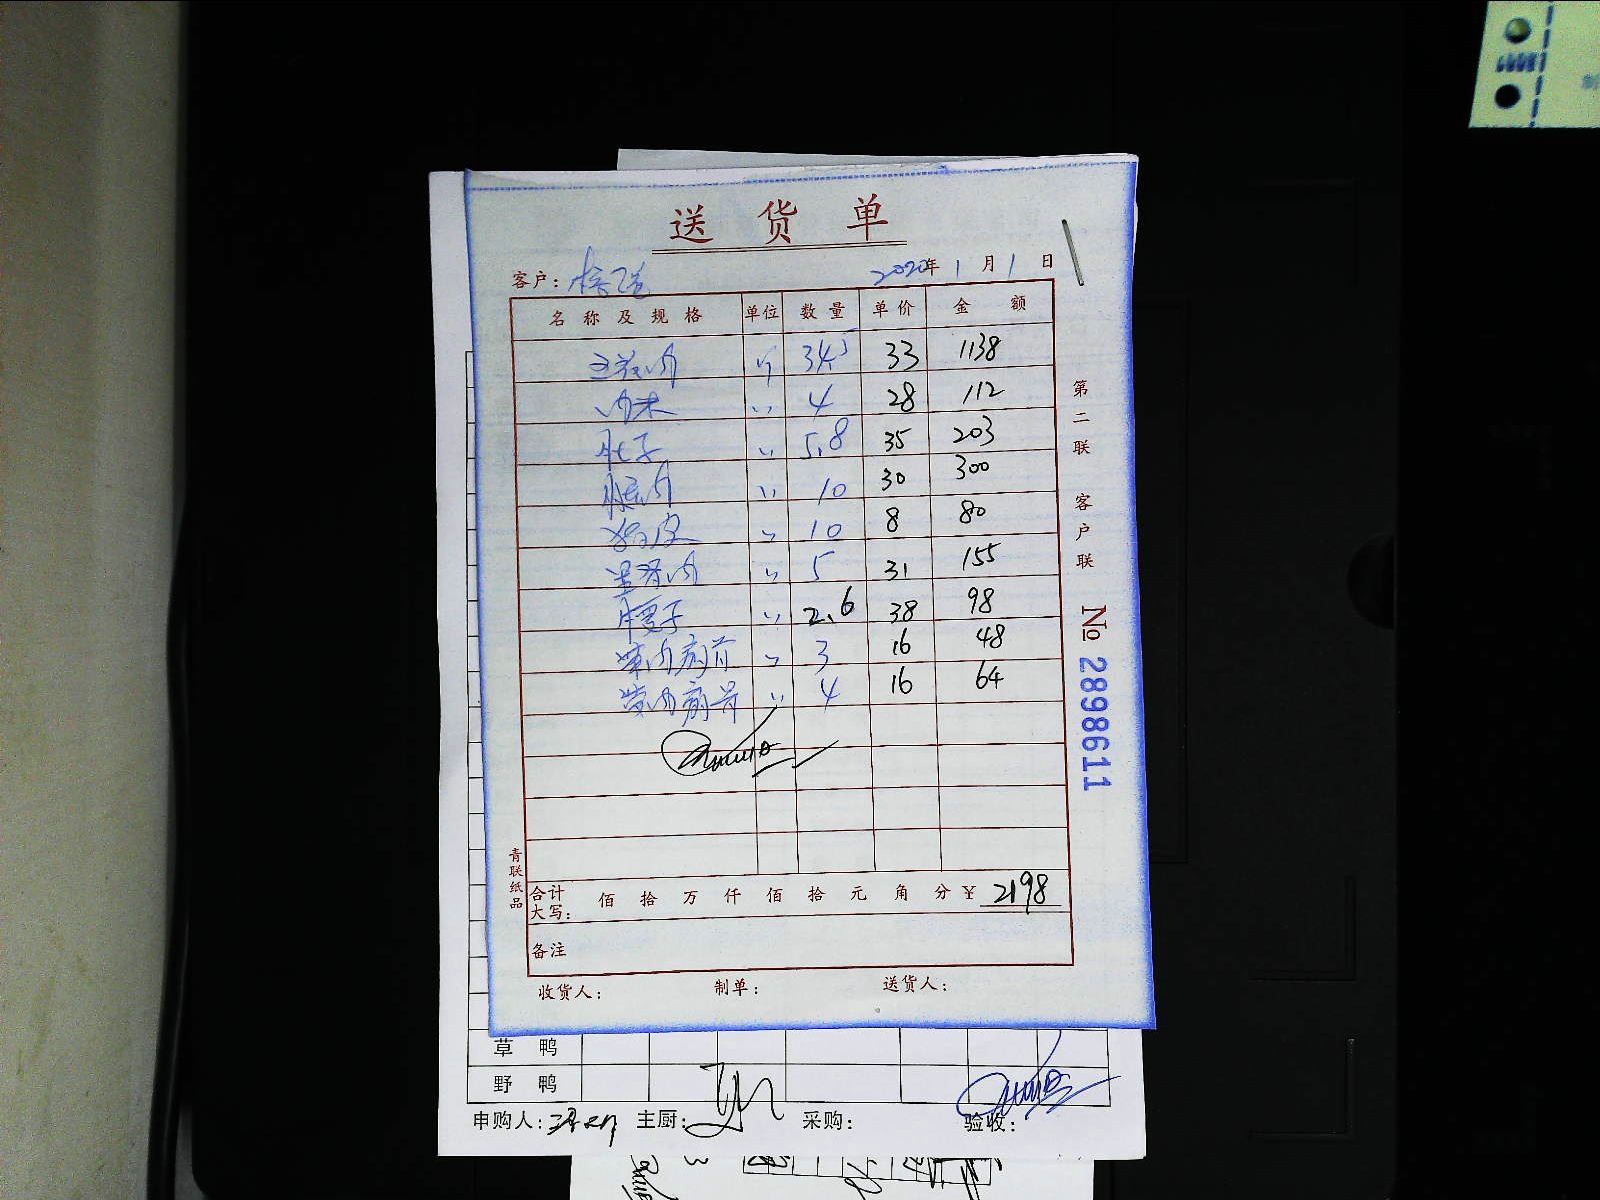 送 货 单
客户：
2020年 1 月 1 日
名称及规格 单位 数量 单价 金额
五花肉 斤 34.5 33 1138
肉末 〃 4 28 112
肚子 〃 5.8 35 203
腿肉 〃 10 30 300
猪皮 〃 10 8 80
里脊肉 〃 5 31 155
腰子 〃 2.6 38 98
肉扇骨 〃 3 16 48
肉扇骨 〃 4 16 64
合计大写： 佰 拾 万 仟 佰 拾 元 角 分 ¥ 2198
备注
收货人： 制单： 送货人：
第二联 客户联
№ 2898611
青联纸品
草 鸭
野 鸭
申购人： 主厨： 采购： 验收：